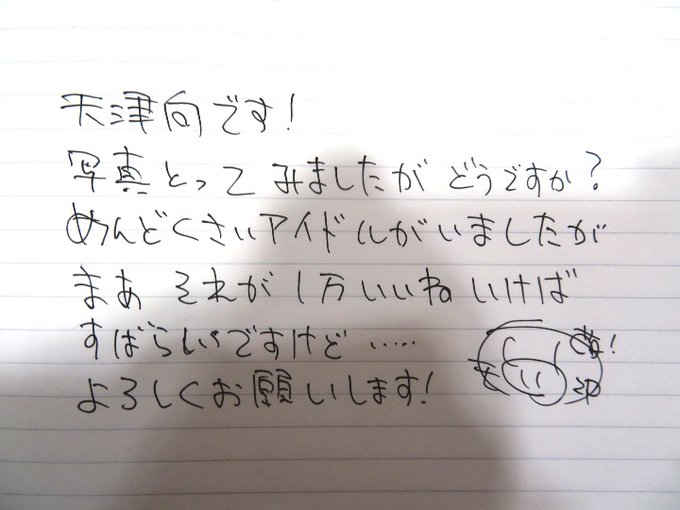 天津向です！
写真とってみましたがどうですか？
めんどくさいアイドルがいましたが
まあそれが1万いいねいけば
すばらしいですけど……
よろしくお願いします！